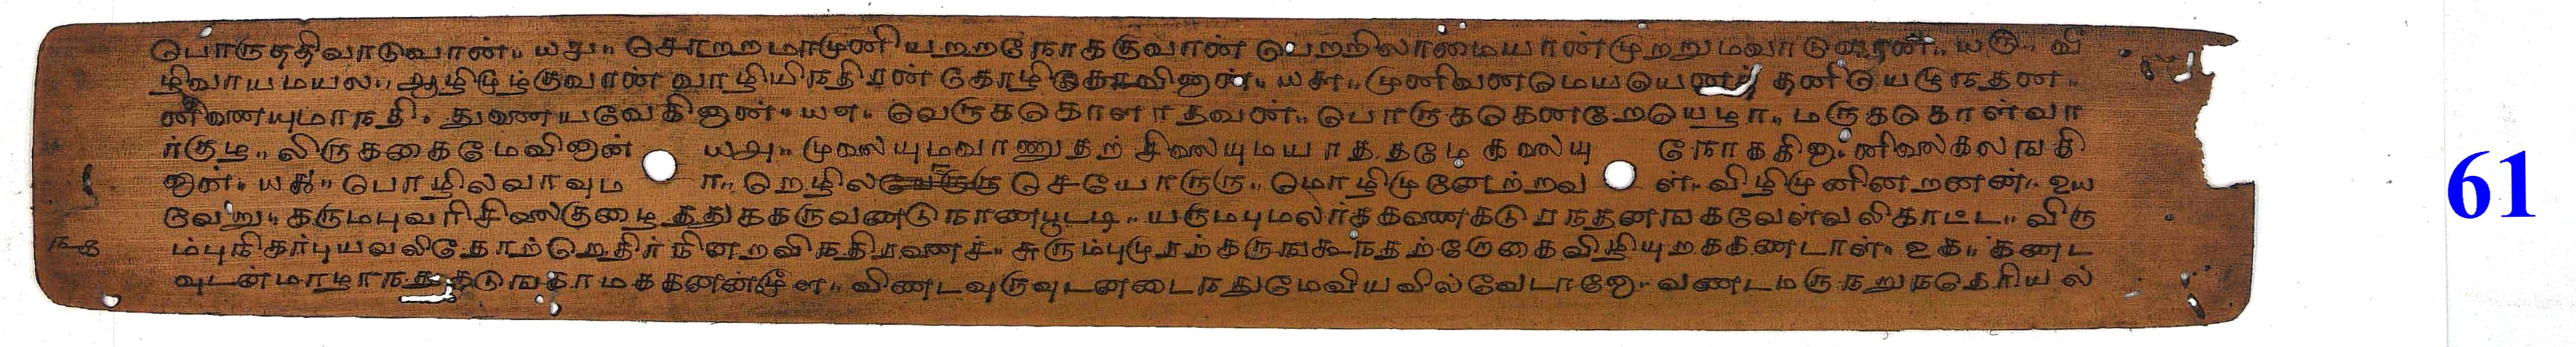 பொருததிவாடுவாண்.. யச.. சொறறமாமுனியறறநோககுவாண் பெறறிலாமையாண்முறறுமவாடுவாண்.. யரு.. வி
ழிவாயமயல.. ஆழிமூழ்குவாண் வாழியிநதிரண் கோழிகூவினுண்.. யசா.. முணிவணமெய தனியெழுநதண..
ணிணையுமாநதி. துணையவேகினுண்.. யள.. வெருககொளாதவண்.. பொருககெனறெயழா.. மருககொள்வா
ர்குழ.. லிருககைமேவினுண் யஅ.. முலையுமவாணுதற் சிலையுமயாததமே கலையு நோககினு. ணிலைகலஙகி
னுண்.. யக.. பொழிலவாவும ா.. றெழில செயயோருரு.. மொழிமுனேற்றவ ள்.. விழிமுனினறனன்.. உய
வேறு.. கருமபுவரிசிலைகுழைததுககருவண்டுநாணபூடடி.. யருமபுமலர்க்கணைகடுரநதனஙகவேள்வலிகாட்ட.. விரு
ம்புநிகர்புயவலிதோற்றெதிர்நினறவிநதிரணைச்.. சுரும்புமுரற்கருஙகூநதற்றோகைவிழியுறககணடாள்.. உக.. கணட
வுடன்மாழாநத கடுஙகாமககனன்மூள.. விணடவுருவுடனடைநதுமேவியவில்வேடானே.. வணடமருநறுநதெரியல்
நக
61